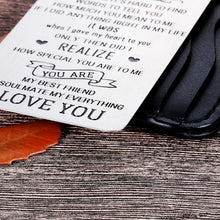 WORDS TO
HOW YOU MEAN TO ME
IF I DID ANYTHING RIGHT IN MY LIFE
it was
when i gave my heart to you
ONLY THEN DID I
REALIZE
HOW SPECIAL YOU ARE TO ME
YOU ARE
MY BEST FRIEND
SOULMATE MY EVERYTHING
LOVE YOU